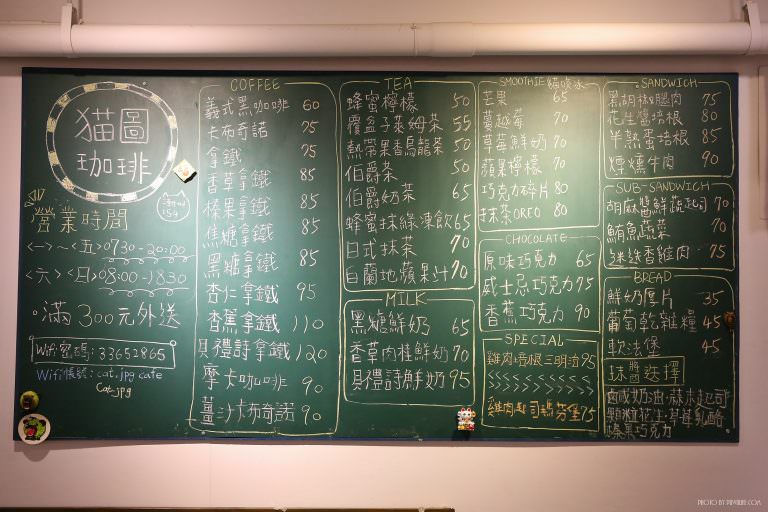 猫圖
珈琲
營業時間
<一>~<五>0730-20:00
<六><日>08:00-1830
滿300元外送
Wifi密碼:33652865
Wifi帳號:cat.jpg cafe
Cat.jpg
COFFEE
義式黑咖啡 60
卡布奇諾 75
拿鐵 75
香草拿鐵 85
榛果拿鐵 85
焦糖拿鐵 85
黑糖拿鐵 85
杏仁拿鐵 95
香蕉拿鐵 110
貝禮詩拿鐵 120
摩卡咖啡 90
薑汁卡布奇諾 90
TEA
蜂蜜檸檬 50
覆盆子萊姆茶 55
熱帶果香烏龍茶 50
伯爵茶 50
伯爵奶茶 65
蜂蜜抹綠凍飲 65
日式抹茶 70
白蘭地蘋果汁 70
MILK
黑糖鮮奶 65
香草肉桂鮮奶 70
貝禮詩鮮奶 95
SMOOTHIE
芒果 65
蔓越莓 70
草莓鮮奶 70
蘋果檸檬 70
巧克力碎片 80
抹茶OREO 80
CHOCOLATE
原味巧克力 65
威士忌巧克力 75
香蕉巧克力 90
SPECIAL
雞肉培根三明治 95
雞肉起司瑪芬堡 75
SANDWICH
黑胡椒腿肉 75
花生醬培根 80
半熟蛋培根 85
煙燻牛肉 90
SUB-SANDWICH
胡麻醬鮮蔬起司 70
鮪魚蔬菜 70
迷迭香雞肉 75
BREAD
鮮奶厚片 35
葡萄乾雜糧 45
軟法堡 45
抹醬選擇
鹹奶油·蒜味起司
顆粒花生·草莓乳酪
榛果巧克力